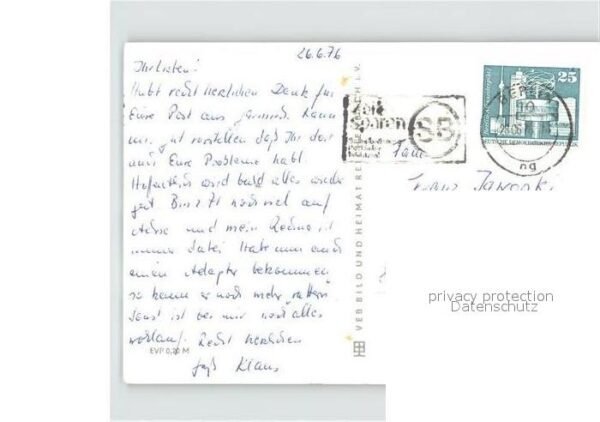 26.6.76
Ihr Lieben!
Habt recht herzlichen Dank für
Eure Post aus Kann
mir gut vorstellen daß Ihr dort
auch Eure Probleme habt.
Hoffentlich wird bald alles wieder
gut. Bin z.Zt. noch mal auf
Achse und mein Recorder ist
immer dabei. Habe nun auch
einen Adapter bekommen
so kann er noch mehr "rattern".
Sonst ist bei mir noch alles
wohlauf. Recht herzlichen
Gruß Klaus
EVP 0,20 M
VEB BILD UND HEIMAT REICHENBACH I. V.
Zeit
sparen
SB
BERLIN
10
26.06
ng
25
DEUTSCHE DEMOKRATISCHE REPUBLIK
Fam.
privacy protection
Datenschutz